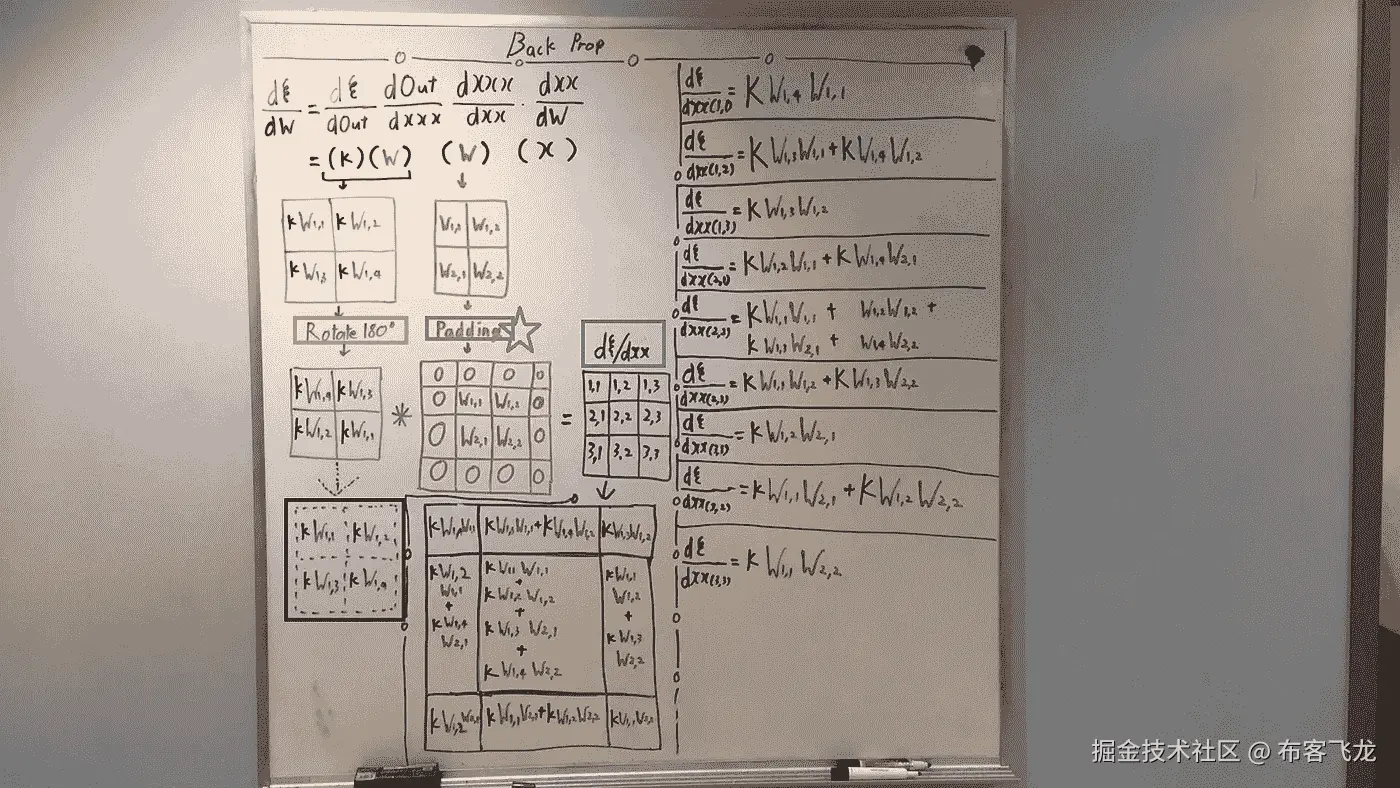 Back Prop
dξ/dW = dξ/dOut dOut/dxxx dxxx/dxx · dxx/dW
= (k)(W) (W) (x)
kW1,1 kW1,2
kW1,3 kW1,4
W1,1 W1,2
W2,1 W2,2
Rotate 180°
Padding
kW1,4 kW1,3
kW1,2 kW1,1
*
0 0 0 0
0 W1,1 W1,2 0
0 W2,1 W2,2 0
0 0 0 0
=
dξ/dxx
1,1 1,2 1,3
2,1 2,2 2,3
3,1 3,2 3,3
kW1,1 kW1,2
kW1,3 kW1,4
kW1,3W1,1+kW1,4W1,2 kW1,3W1,2
kW1,2
W1,1
+
kW1,4
W2,1
kW1,1 W1,1
+
kW1,2 W1,2
+
kW1,3 W2,1
+
kW1,4 W2,2
kW1,1
W1,2
+
kW1,3
W2,2
kW1,2W2,1 kW1,1W2,1+kW1,2W2,2 kW1,1W2,2
dξ/dxx(1,1) = KW1,4W1,1
dξ/dxx(1,2) = KW1,3W1,1+KW1,4W1,2
dξ/dxx(1,3) = KW1,3W1,2
dξ/dxx(2,1) = KW1,2W1,1+KW1,4W2,1
dξ/dxx(2,3) = KW1,1W1,1 + W1,2W1,2 +
KW1,3W2,1 + W1,4W2,2
dξ/dxx(2,3) = KW1,1W1,2+KW1,3W2,2
dξ/dxx(3,1) = KW1,2W2,1
dξ/dxx(3,2) = KW1,1W2,1+KW1,2W2,2
dξ/dxx(3,3) = KW1,1W2,2
掘金技术社区 @ 布客飞龙